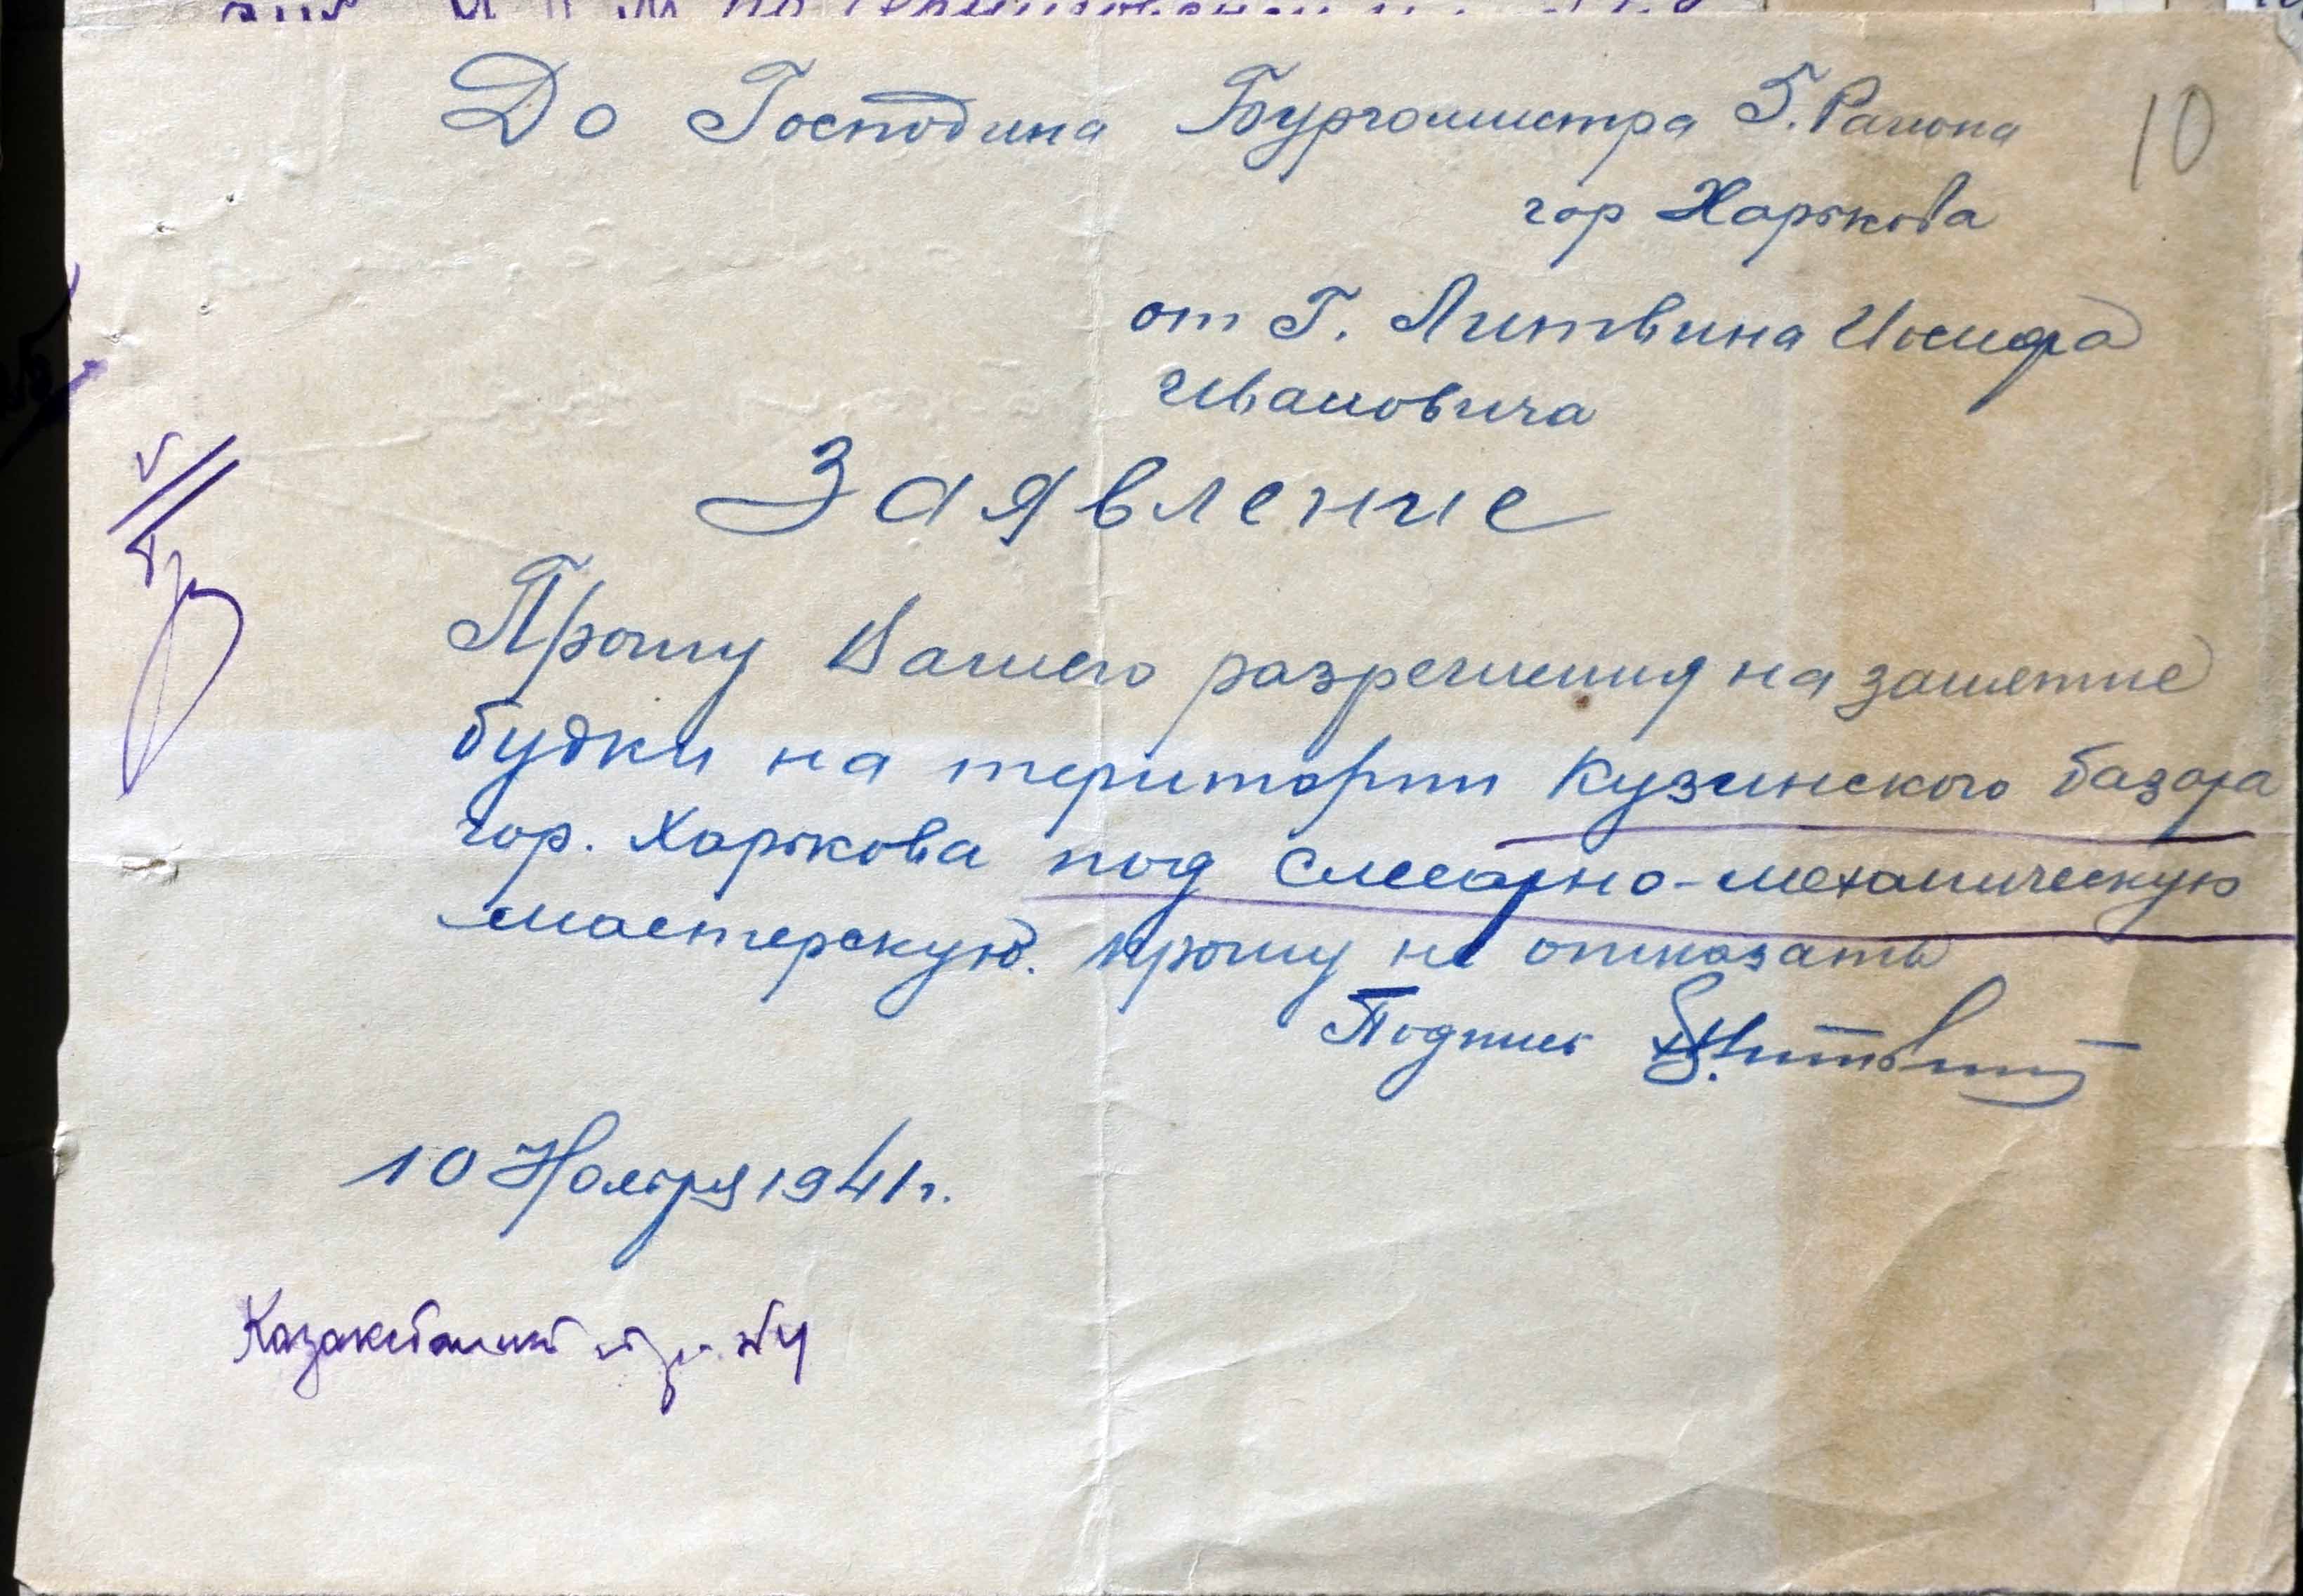 До Господина Бургомистра 5. Района
10
гор Харькова
от Г. Литвина Иосифа
Ивановича
Заявление
Прошу Вашего разрешения на занетие
будки на територии Кузинского базара
гор. Харькова под слесарно-механическую
мастерскую. прошу не отказать
Подпись Литвин
10 Ноября 1941 г.
№ 4